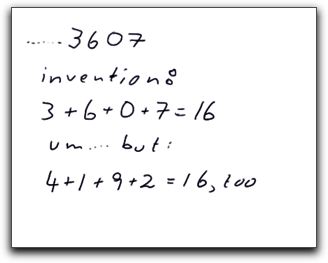 ...... 3607
invention:
3+6+0+7=16
um.... but:
4+1+9+2=16, too